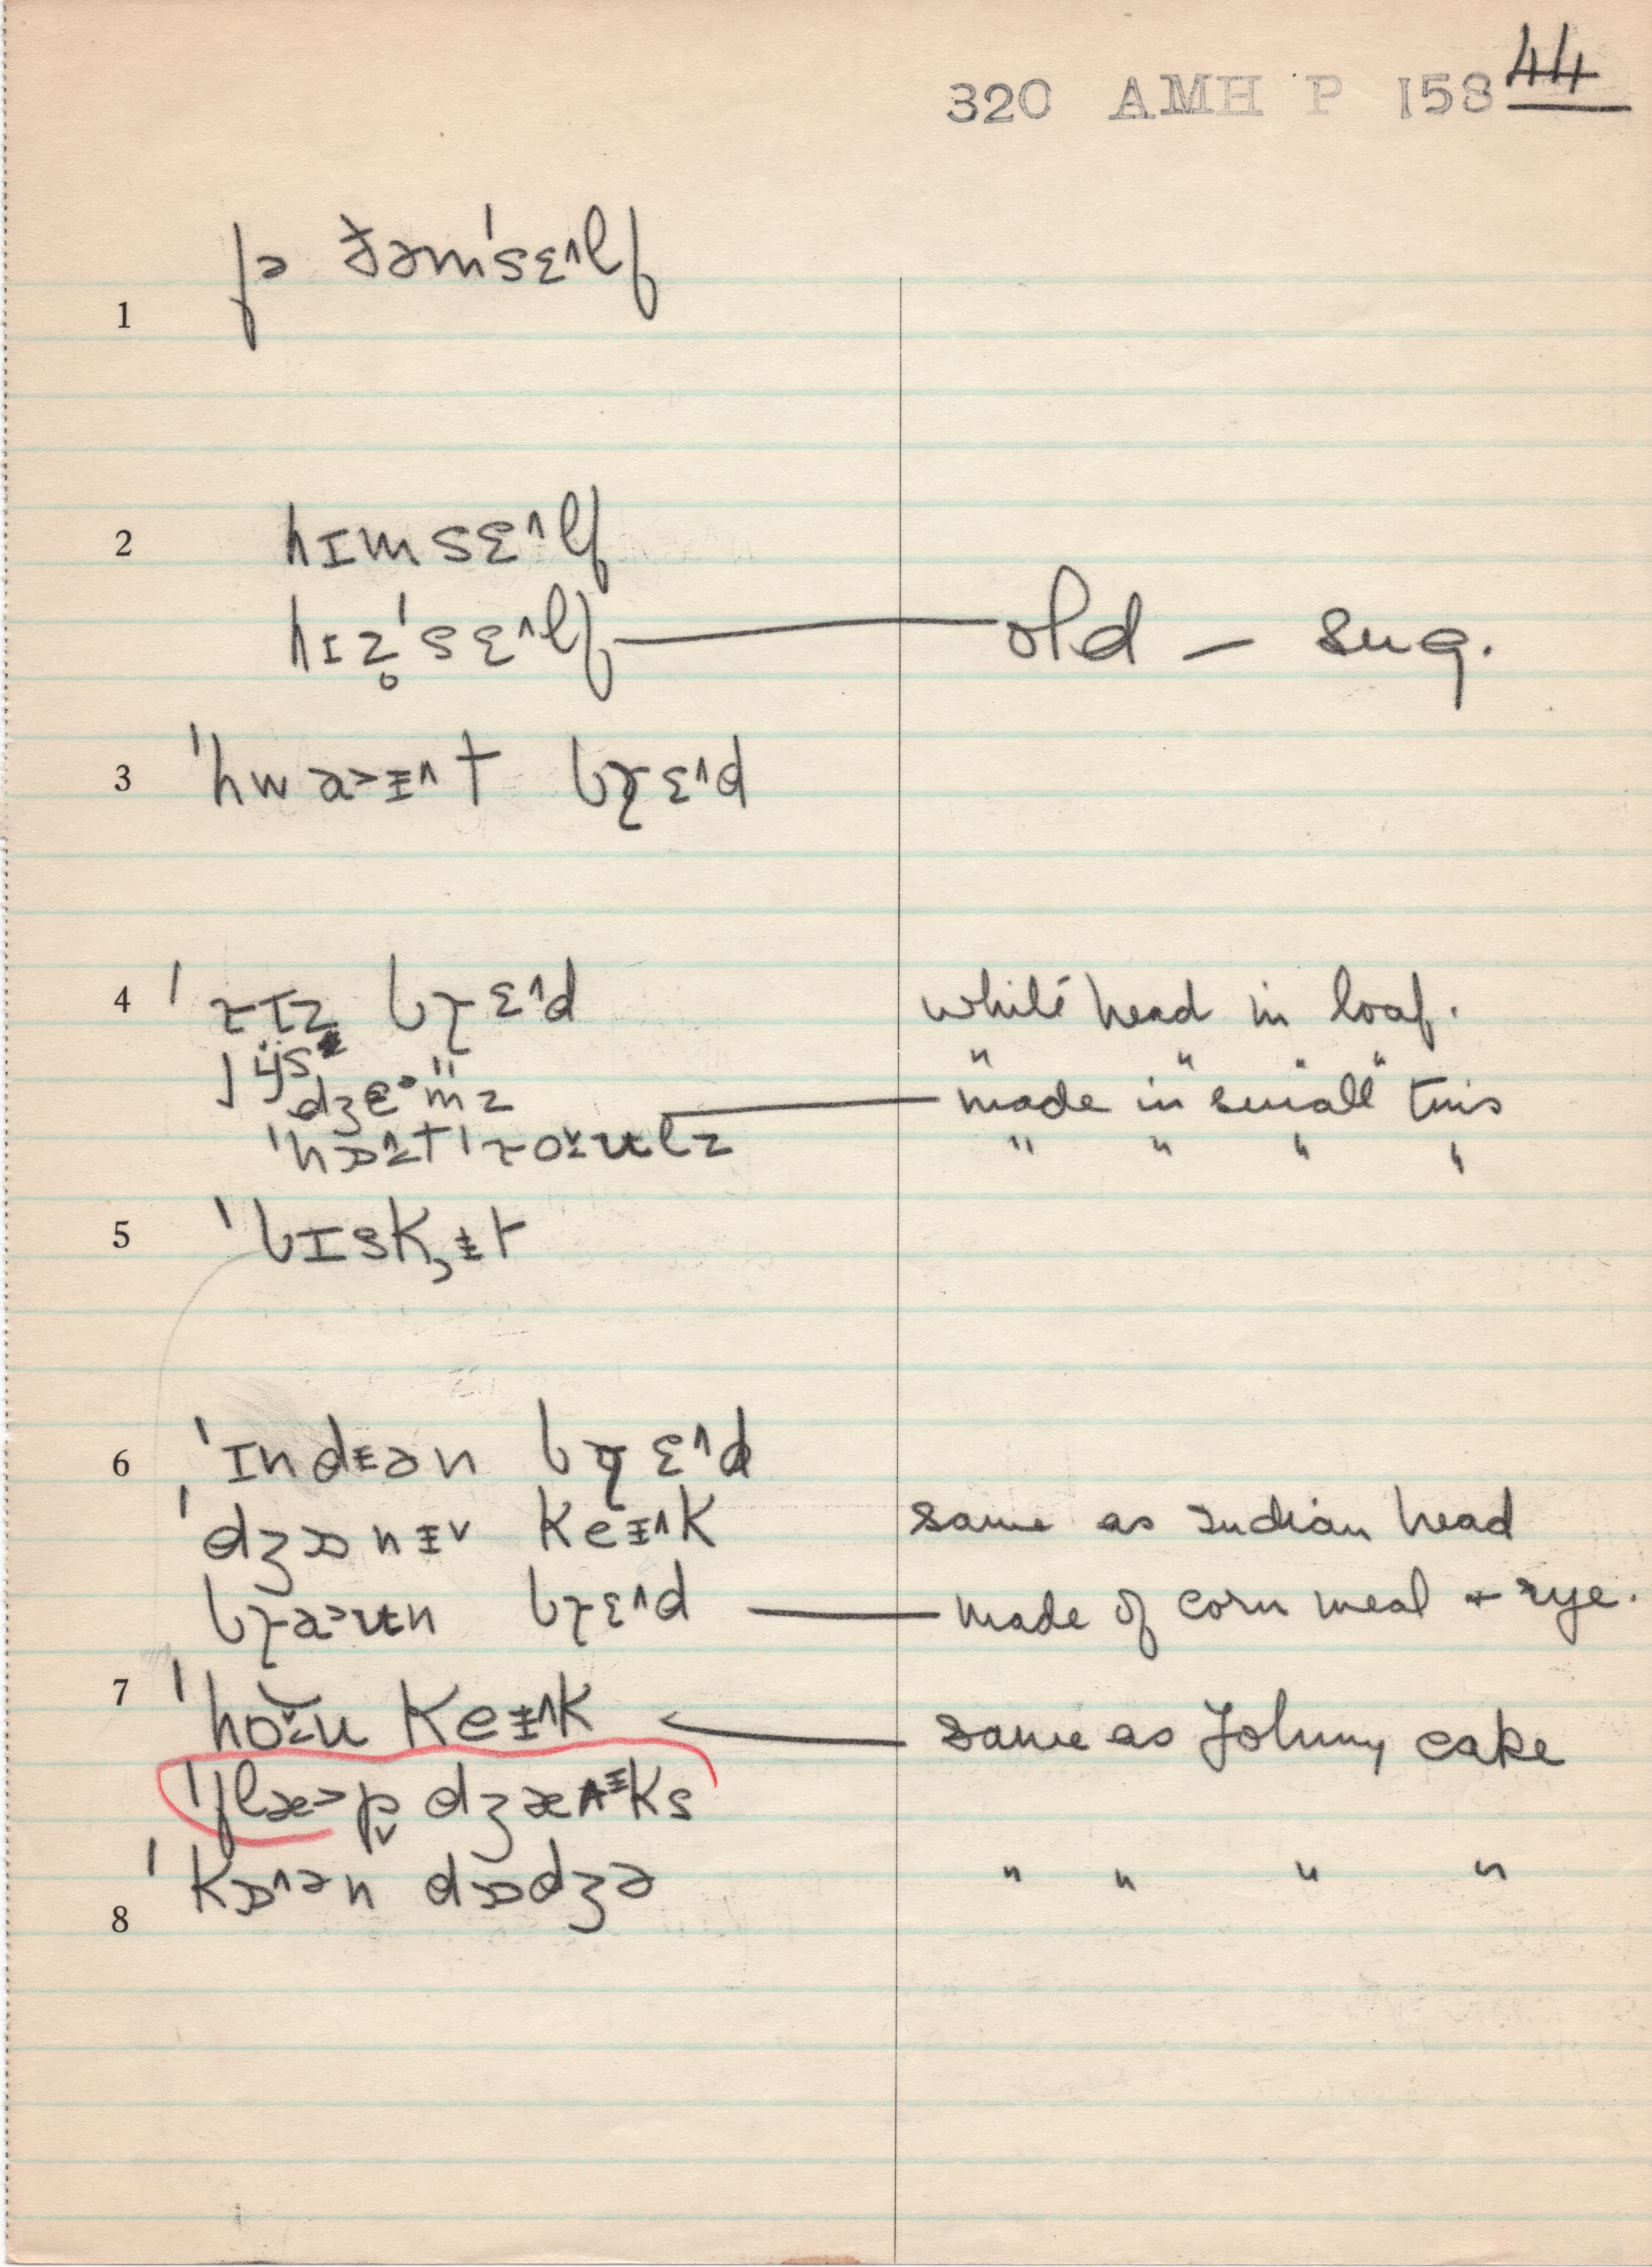 44
320 AMH P 158
1 fə ðəm'sɛ˄lf
2 hɪmsɛ˄lf
hɪz̥'sɛ˄lf — old — sug.
3 'hwa˃ɨ˄t brɛ˄d
4 'rɪz brɛ˄d white bread in loaf.
" " " "
dʒɛ˃mz — made in small tins
'hɒ˄t 'roʊlz " " " "
5 'bɪskɨt
6 'ɪndɪən brɛ˄d
'dʒɒnɨ˅ keɨ˄k same as Indian bread
bra˃ʉn brɛ˄d — made of corn meal + rye.
7 'hoʊ keɨ˄k ← same as Johnny cake
'flæ˃p dʒæɨks
'kɒ˄ən dɒdʒə " " " "
8